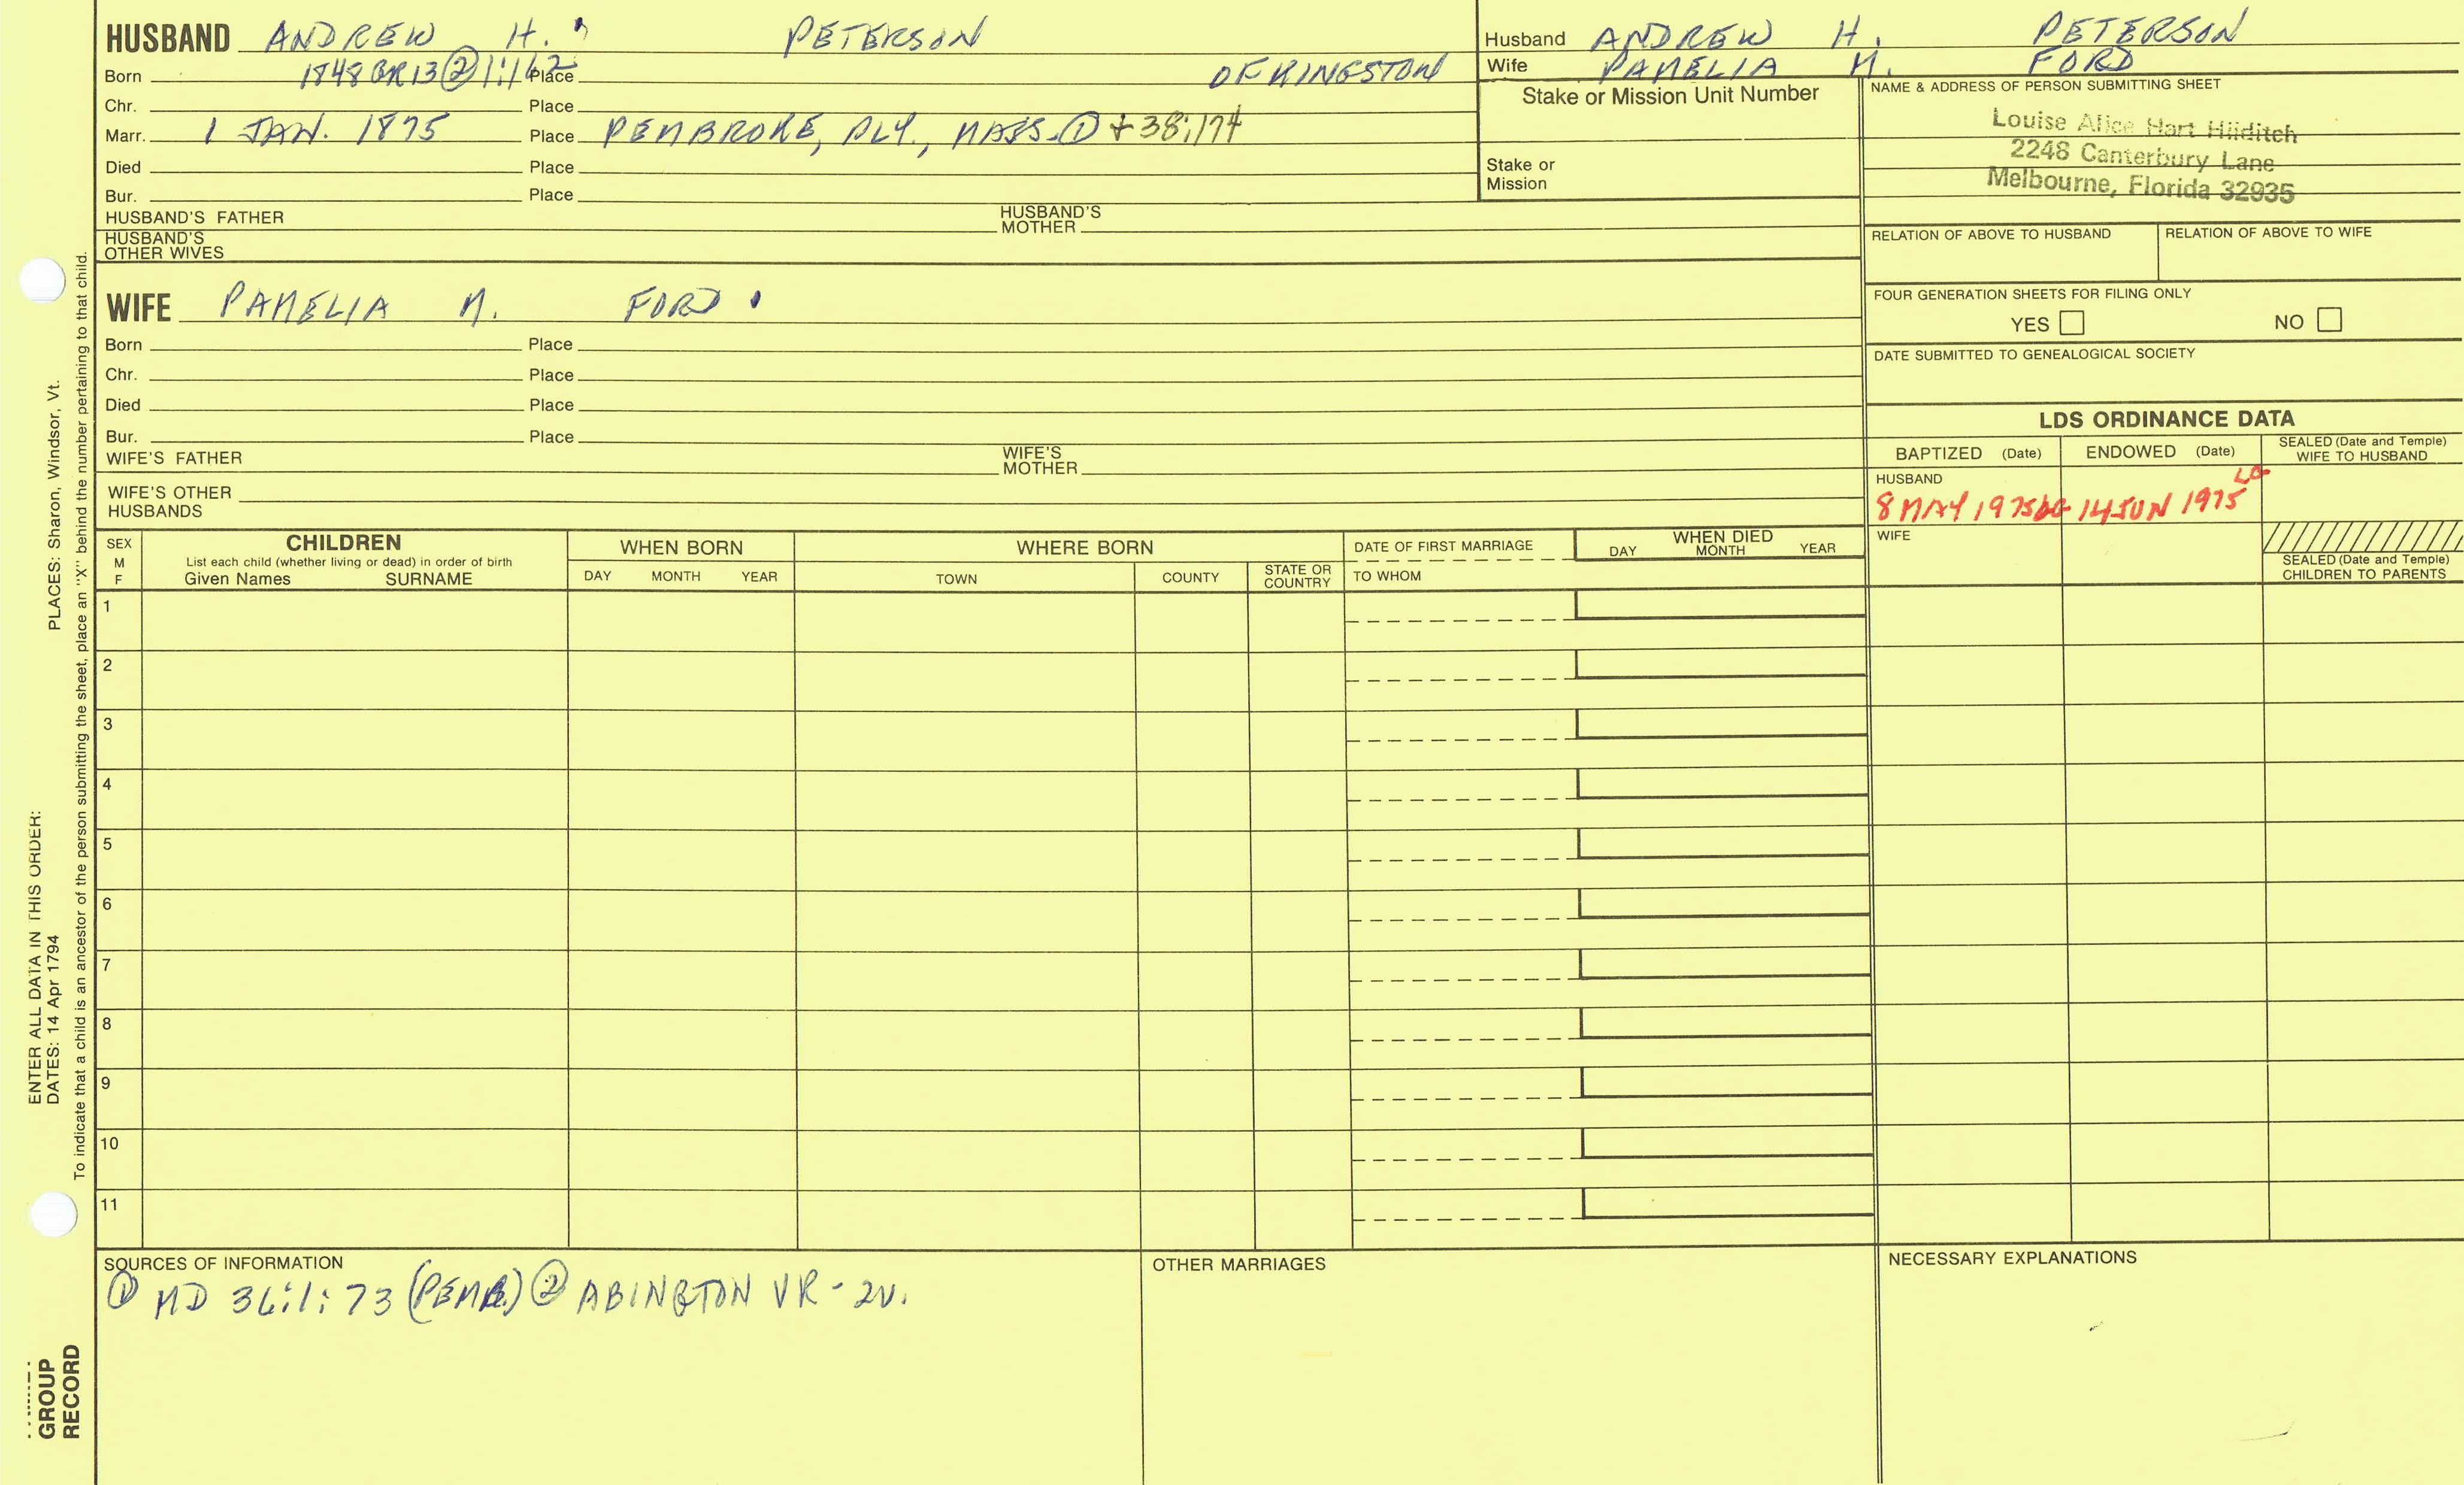 HUSBAND ANDREW H. PETERSON
Born 1848 GR13 ② 1:162 Place OF KINGSTON
Chr. Place
Marr. 1 JAN. 1875 Place PEMBROKE, PLY., MASS. ① + 38:174
Died Place
Bur. Place
HUSBAND'S FATHER HUSBAND'S MOTHER
HUSBAND'S OTHER WIVES
Husband ANDREW H. PETERSON
Wife PAMELIA M. FORD
Stake or Mission Unit Number
Stake or Mission
NAME & ADDRESS OF PERSON SUBMITTING SHEET
Louise Alice Hart Hilditch
2248 Canterbury Lane
Melbourne, Florida 32935
RELATION OF ABOVE TO HUSBAND RELATION OF ABOVE TO WIFE
FOUR GENERATION SHEETS FOR FILING ONLY
YES NO
DATE SUBMITTED TO GENEALOGICAL SOCIETY
WIFE PAMELIA M. FORD
Born Place
Chr. Place
Died Place
Bur. Place
WIFE'S FATHER WIFE'S MOTHER
WIFE'S OTHER HUSBANDS
LDS ORDINANCE DATA
BAPTIZED (Date) ENDOWED (Date) SEALED (Date and Temple) WIFE TO HUSBAND
HUSBAND
8 MAY 1975 LG 14 JUN 1975 LG
WIFE
SEALED (Date and Temple) CHILDREN TO PARENTS
SEX M F
CHILDREN
List each child (whether living or dead) in order of birth
Given Names SURNAME
WHEN BORN
DAY MONTH YEAR
WHERE BORN
TOWN COUNTY STATE OR COUNTRY
DATE OF FIRST MARRIAGE
TO WHOM
WHEN DIED
DAY MONTH YEAR
1
2
3
4
5
6
7
8
9
10
11
SOURCES OF INFORMATION
① MD 36:1:73 (PEMB.) ② ABINGTON VR - 2V.
OTHER MARRIAGES
NECESSARY EXPLANATIONS
ENTER ALL DATA IN THIS ORDER:
DATES: 14 Apr 1794 PLACES: Sharon, Windsor, Vt.
To indicate that a child is an ancestor of the person submitting the sheet, place an "X" behind the number pertaining to that child.
GROUP
RECORD